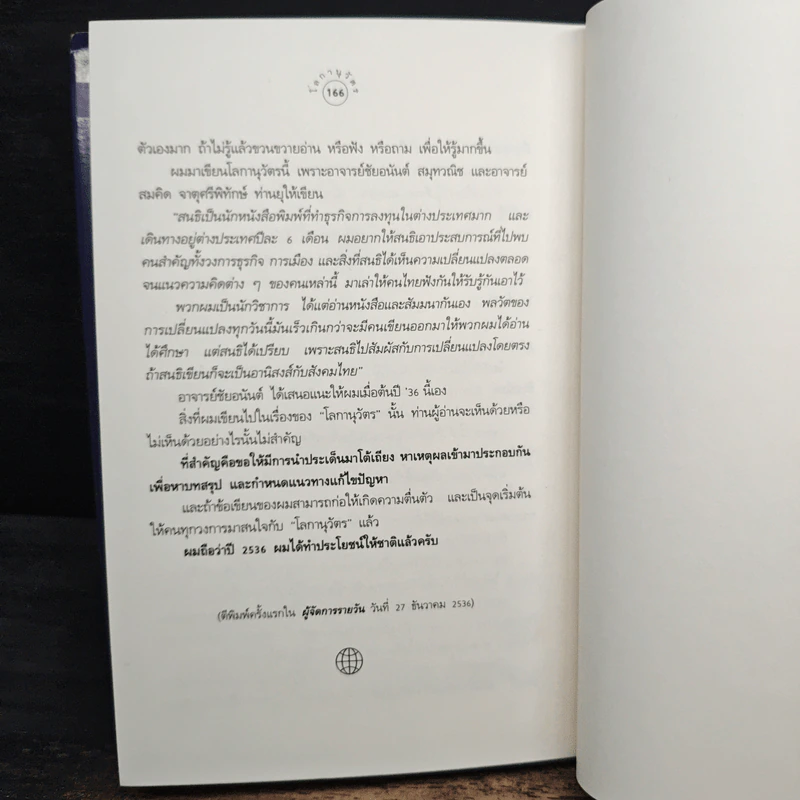 โลกานุวัตร
166
ตัวเองมาก ถ้าไม่รู้แล้วขวนขวายอ่าน หรือฟัง หรือถาม เพื่อให้รู้มากขึ้น
ผมมาเขียนโลกานุวัตรนี้ เพราะอาจารย์ชัยอนันต์ สมุทวณิช และอาจารย์
สมคิด จาตุศรีพิทักษ์ ท่านยุให้เขียน
"สนธิเป็นนักหนังสือพิมพ์ที่ทำธุรกิจการลงทุนในต่างประเทศมาก และ
เดินทางอยู่ต่างประเทศปีละ 6 เดือน ผมอยากให้สนธิเอาประสบการณ์ที่ไปพบ
คนสำคัญทั้งวงการธุรกิจ การเมือง และสิ่งที่สนธิได้เห็นความเปลี่ยนแปลงตลอด
จนแนวความคิดต่าง ๆ ของคนเหล่านี้ มาเล่าให้คนไทยฟังกันให้รับรู้กันเอาไว้
พวกผมเป็นนักวิชาการ ได้แต่อ่านหนังสือและสัมมนากันเอง พลวัตของ
การเปลี่ยนแปลงทุกวันนี้มันเร็วเกินกว่าจะมีคนเขียนออกมาให้พวกผมได้อ่าน
ได้ศึกษา แต่สนธิได้เปรียบ เพราะสนธิไปสัมผัสกับการเปลี่ยนแปลงโดยตรง
ถ้าสนธิเขียนก็จะเป็นอานิสงส์กับสังคมไทย"
อาจารย์ชัยอนันต์ ได้เสนอแนะให้ผมเมื่อต้นปี '36 นี้เอง
สิ่งที่ผมเขียนไปในเรื่องของ "โลกานุวัตร" นั้น ท่านผู้อ่านจะเห็นด้วยหรือ
ไม่เห็นด้วยอย่างไรนั้นไม่สำคัญ
ที่สำคัญคือขอให้มีการนำประเด็นมาโต้เถียง หาเหตุผลเข้ามาประกอบกัน
เพื่อหาบทสรุป และกำหนดแนวทางแก้ไขปัญหา
และถ้าข้อเขียนของผมสามารถก่อให้เกิดความตื่นตัว และเป็นจุดเริ่มต้น
ให้คนทุกวงการมาสนใจกับ "โลกานุวัตร" แล้ว
ผมถือว่าปี 2536 ผมได้ทำประโยชน์ให้ชาติแล้วครับ
(ตีพิมพ์ครั้งแรกใน ผู้จัดการรายวัน วันที่ 27 ธันวาคม 2536)